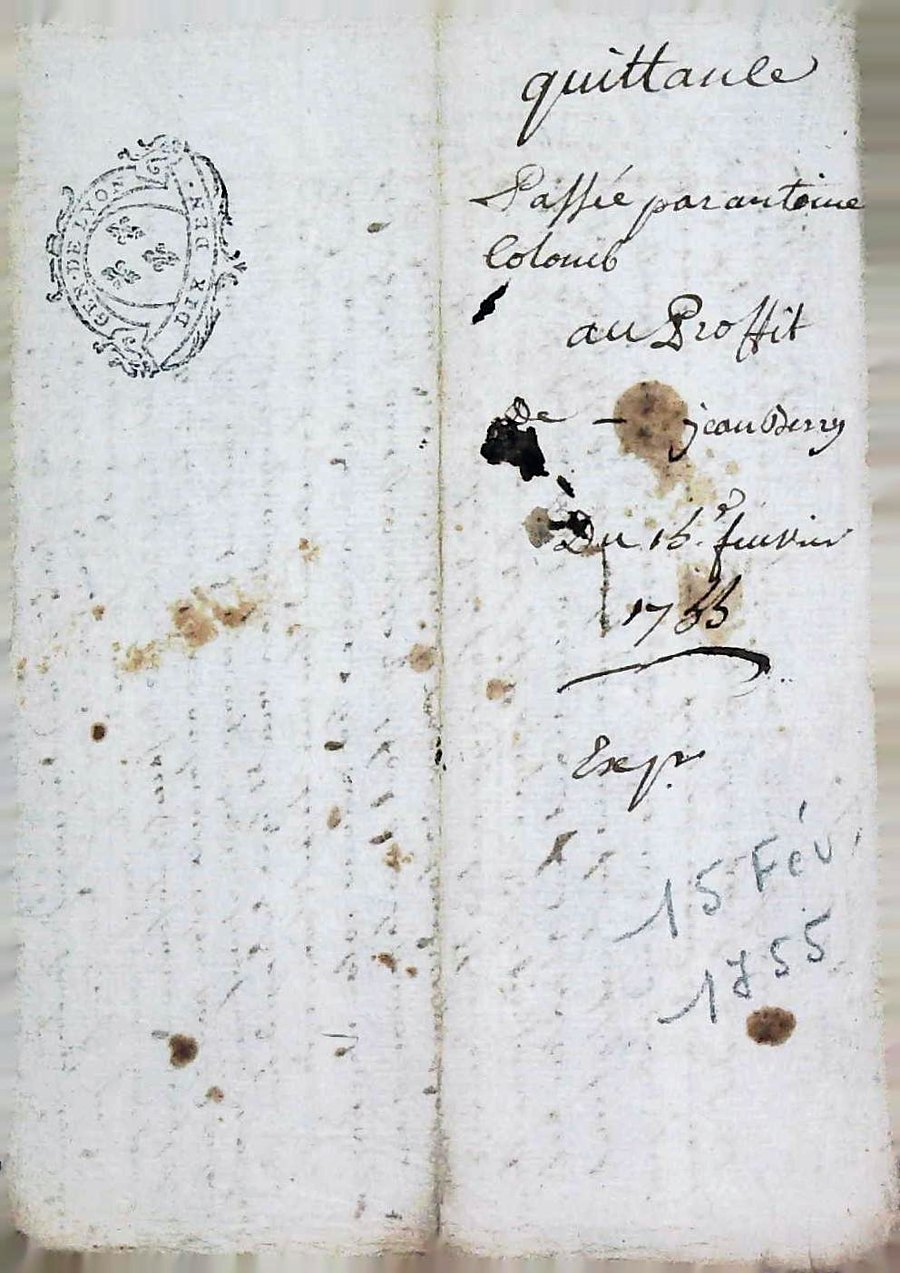 GEN · DE LYON
DIX DEN ·
quittance
Passée par antoine
Colomb
au Proffit
De — jean Berry
Du 15.e feuvrier
1755
Exp.
15 Fév.
1755